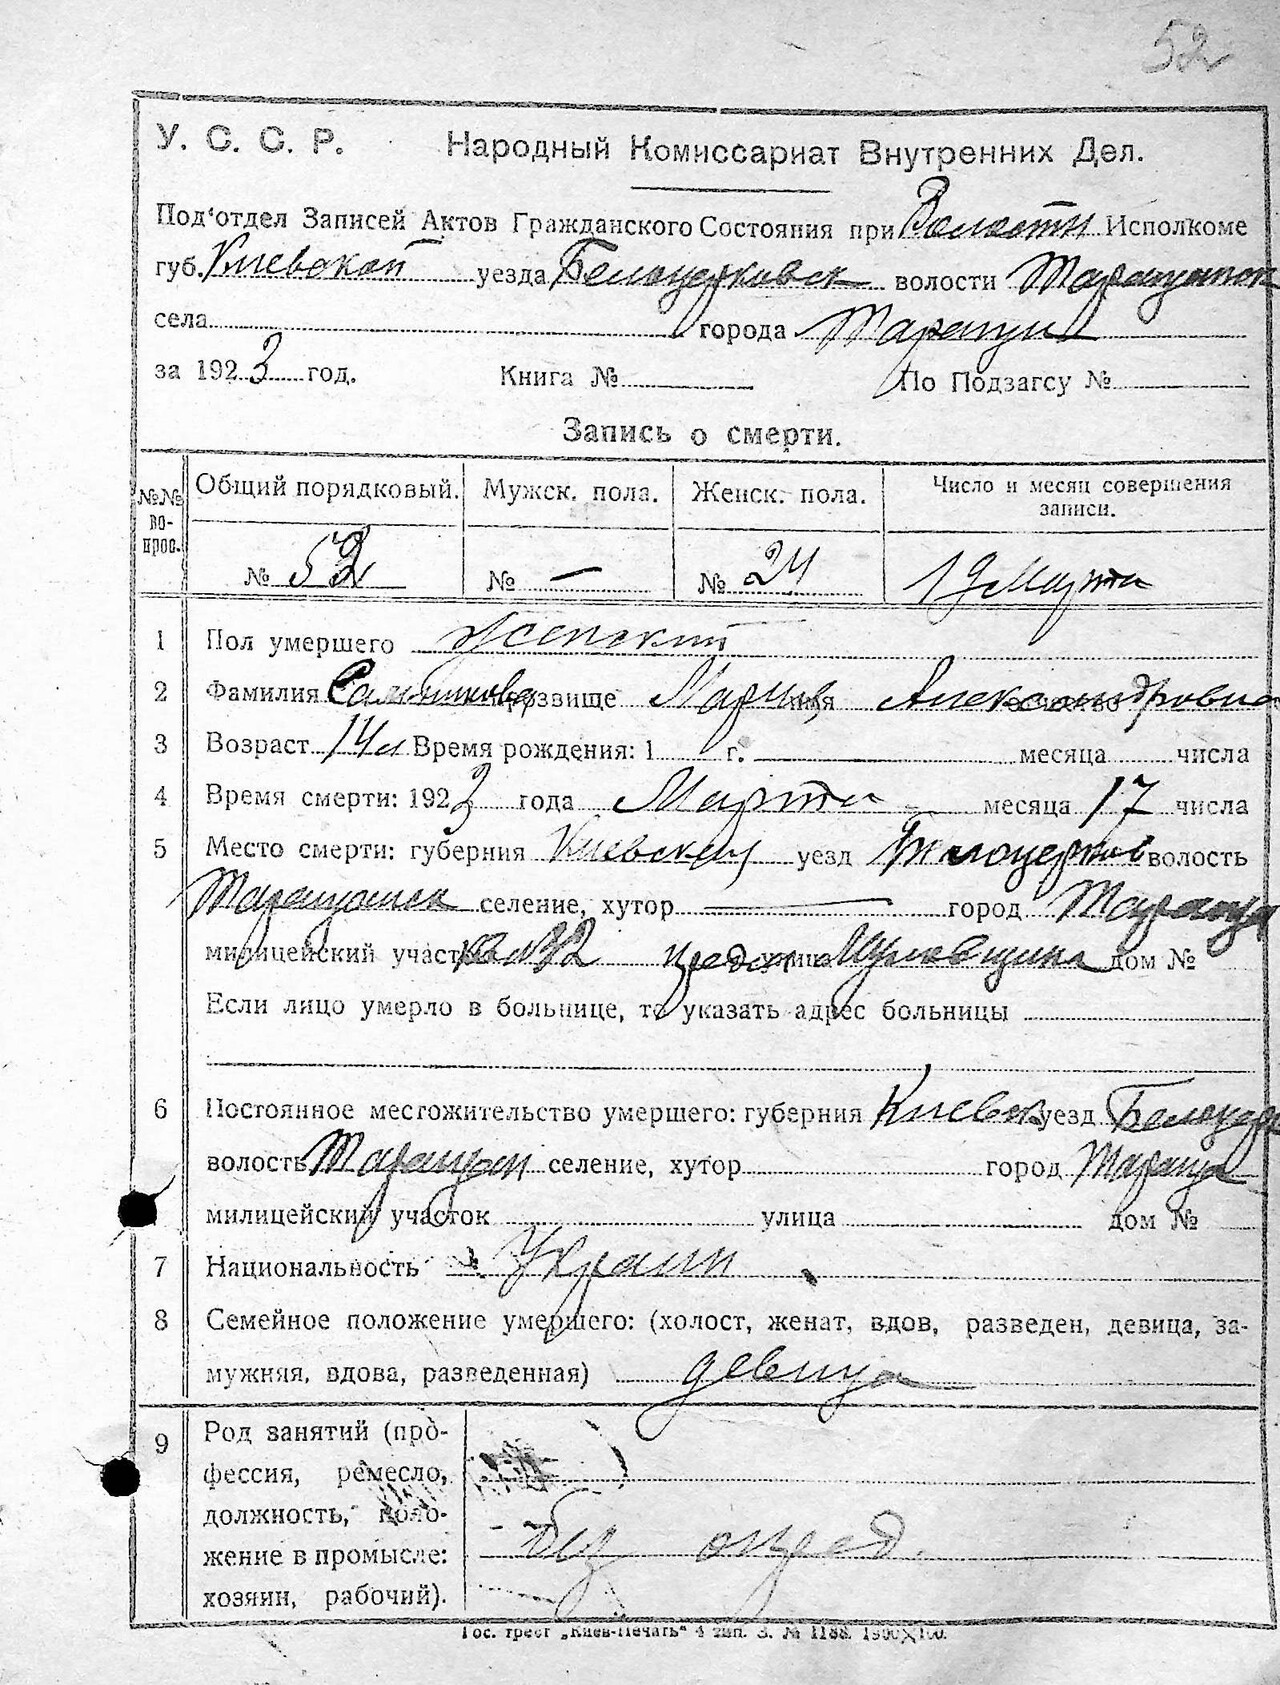 52
У. С. С. Р. Народный Комиссариат Внутренних Дел.
Под‘отдел Записей Актов Гражданского Состояния при Волостн Исполкоме
губ. Киевской уезда Белоцерковск волости Таращанск
села города Таращи
за 1923 год. Книга № По Подзагсу №
Запись о смерти.
№№ во-прос. Общий порядковый. Мужск. пола. Женск. пола. Число и месяц совершения записи.
№ 52 № — № 24 19 Марта
1 Пол умершего Женский
2 Фамилия прозвище Мария имя Александровна
3 Возраст 14 л Время рождения: 1 г. месяца числа
4 Время смерти: 1923 года Марта месяца 17 числа
5 Место смерти: губерния Киевская уезд Белоцерков волость
Таращанск селение, хутор — город Тараща
милицейский участок №2 предм улица дом №
Если лицо умерло в больнице, то указать адрес больницы
6 Постоянное местожительство умершего: губерния Киевск уезд Белоцерк
волость Таращан селение, хутор город Тараща
милицейский участок улица дом №
7 Национальность Украин
8 Семейное положение умершего: (холост, женат, вдов, разведен, девица, за-
мужняя, вдова, разведенная) девица
9 Род занятий (про-
фессия, ремесло,
должность, поло-
жение в промысле: без опред.
хозяин, рабочий).
Гос. трест „Киев-Печать“ 4 тип. З. № 1188. 1500×100.